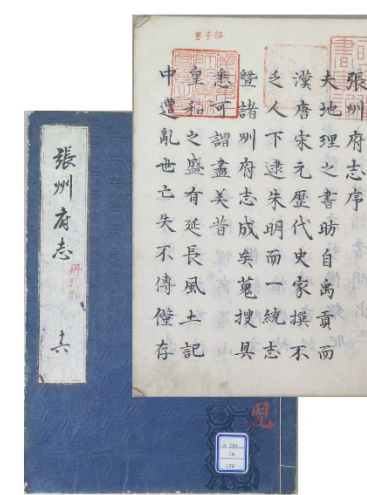 張州府志序
夫地理之書昉自禹貢而
漢唐宋元歷代史家撰不
乏人下逮朱明而一統志
曁諸州府志成矣蒐搜具
悉可謂盡美昔
皇和之盛有延長風土記
中遭亂世亡失不傳僅存
張州府志
丹羽郡